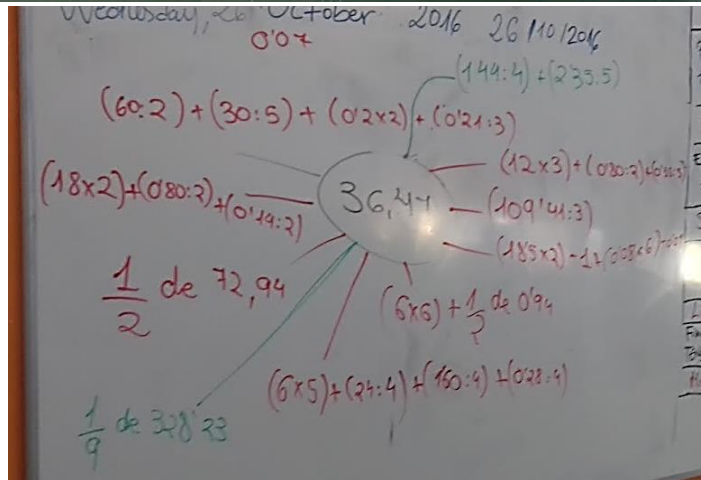 Wednesday, 26 October 2016 26/10/2016
0'07
(144:4)+(2'35:5)
(60:2)+(30:5)+(0'2x2)+(0'21:3)
(12x3)+(0'80:2)+
(18x2)+(0'80:2)+(0'14:2)
36,47
(109'41:3)
(18'5x2)-1+(0'08x6)
1/2 de 72,94
(6x6)+1/2 de 0'94
(6x5)+(24:4)+(1'60:4)+(0'28:4)
1/9 de 328'23